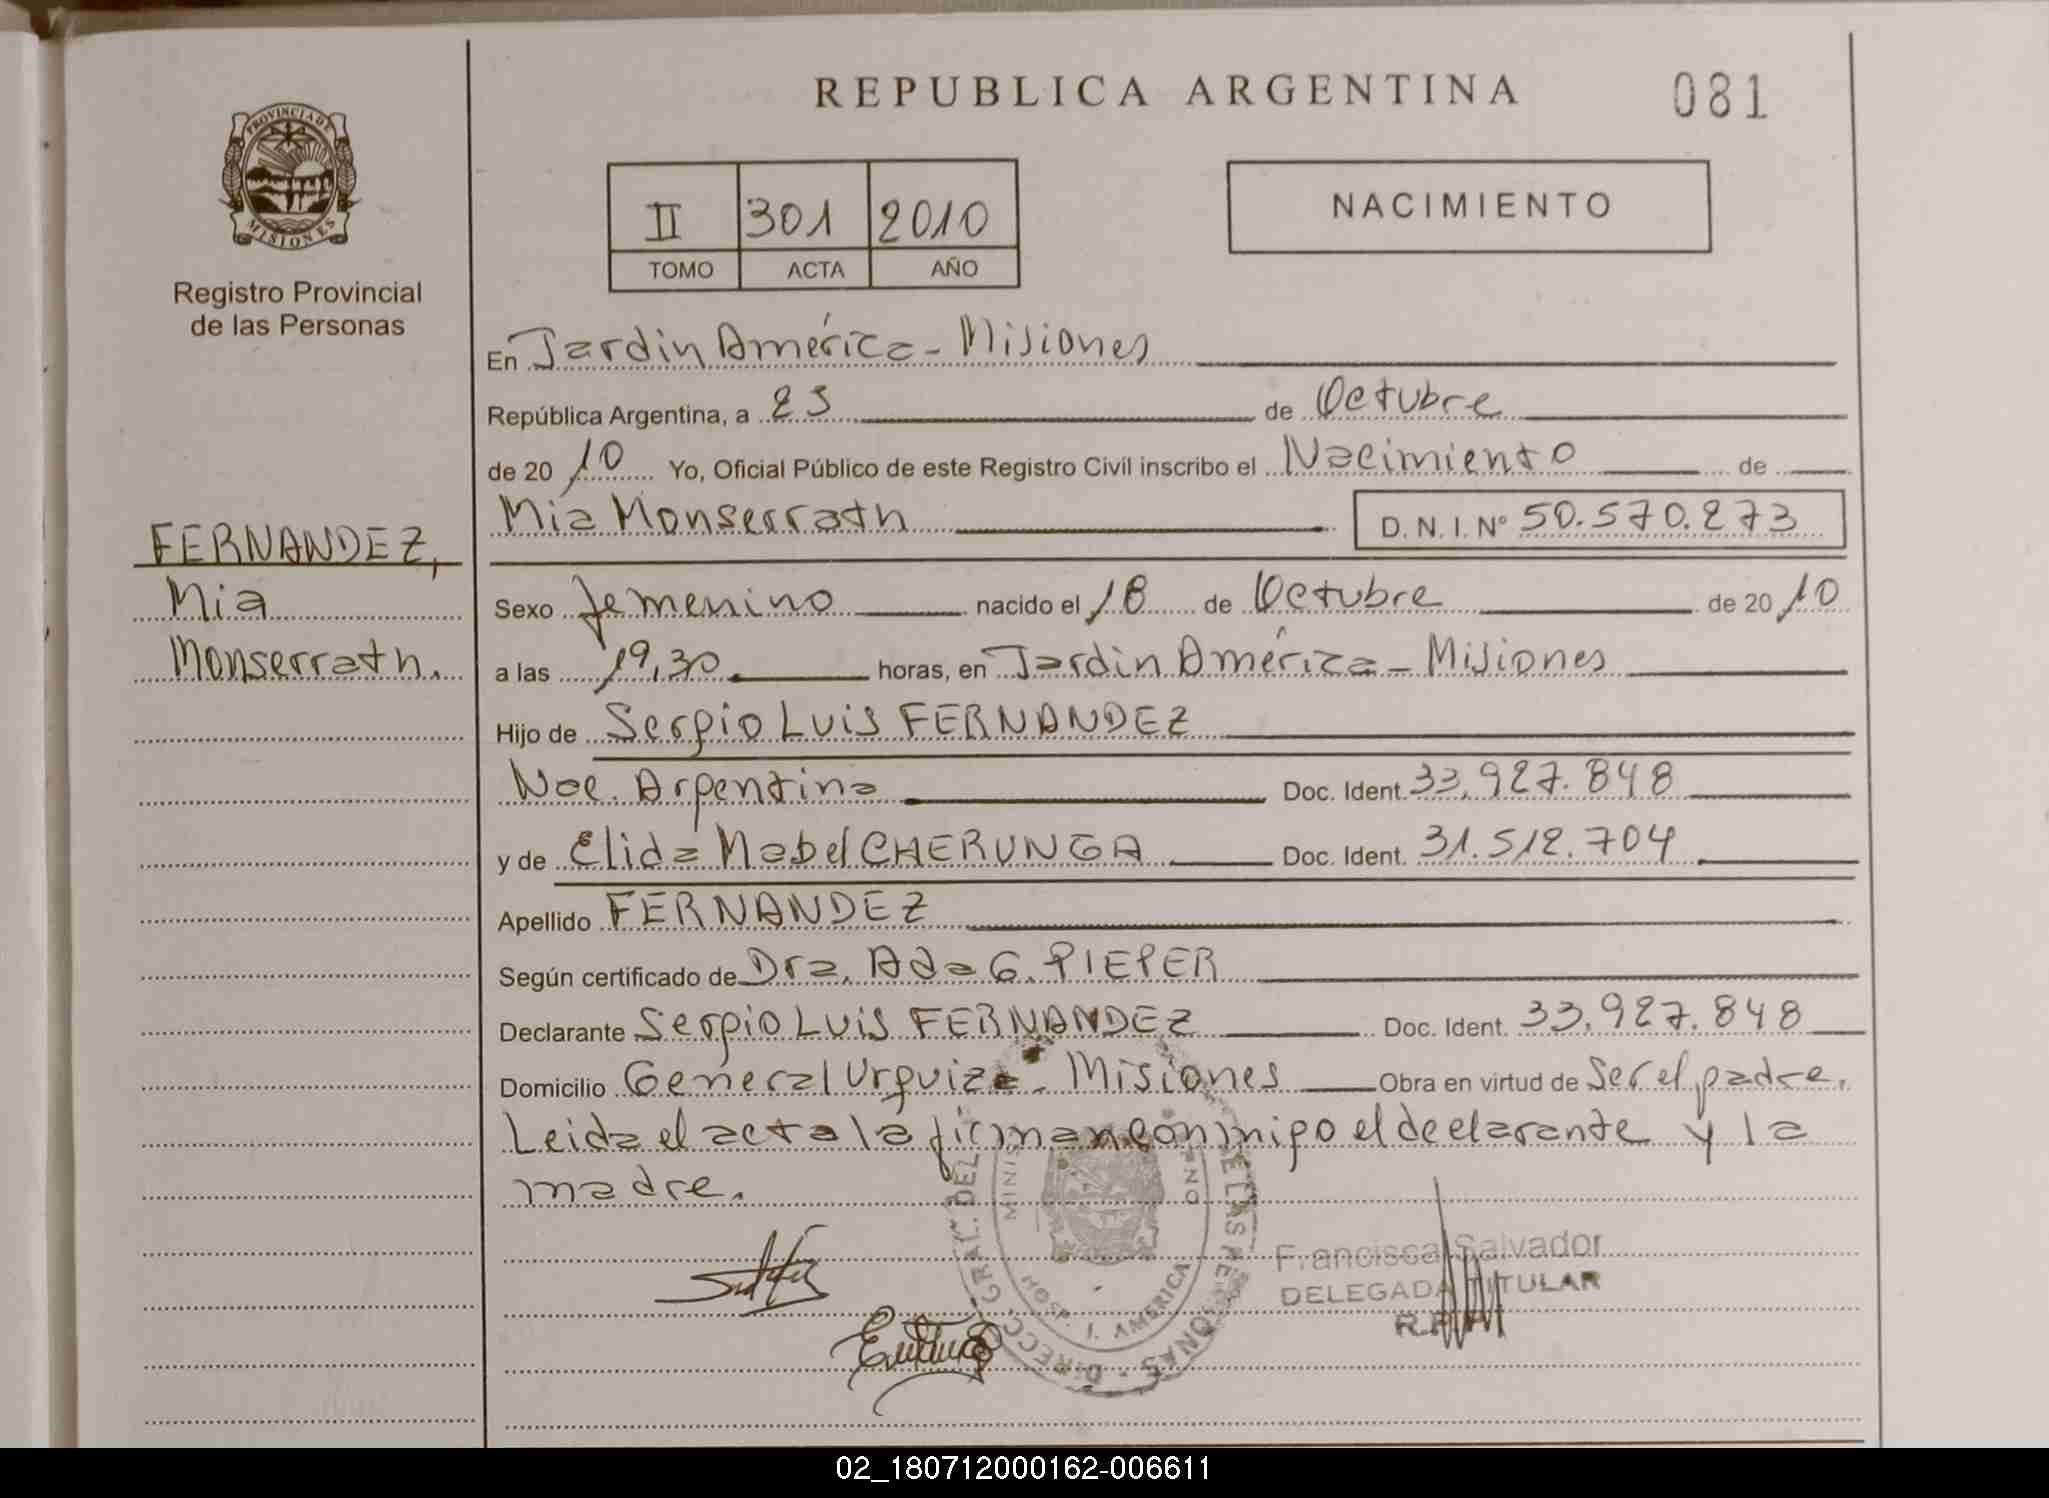 REPUBLICA ARGENTINA
081
PROVINCIA DE
MISIONES
Registro Provincial
de las Personas
II 301 2010
TOMO ACTA AÑO
NACIMIENTO
En Jardin América - Misiones
República Argentina, a 23 de Octubre
de 20 10 Yo, Oficial Público de este Registro Civil inscribo el Nacimiento de
Mia Monserrath D.N.I. Nº 50.570.273
FERNANDEZ,
Mia
Monserrath.
Sexo femenino nacido el 18 de Octubre de 20 10
a las 19,30 horas, en Jardin América - Misiones
Hijo de Sergio Luis FERNANDEZ
Nac. Argentina Doc. Ident. 33.927.848
y de Elida Mabel CHERUNGA Doc. Ident. 31.512.704
Apellido FERNANDEZ
Según certificado de Dra. Ada G. PIEPER
Declarante Sergio Luis FERNANDEZ Doc. Ident. 33.927.848
Domicilio General Urquiza - Misiones Obra en virtud de Ser el padre.
Leida el acta la firman conmigo el declarante y la
madre.
DIRECC. GRAL. DEL
MINIS
HOSP. J. AMERICA
Francisca Salvador
DELEGADA TITULAR
02_180712000162-006611